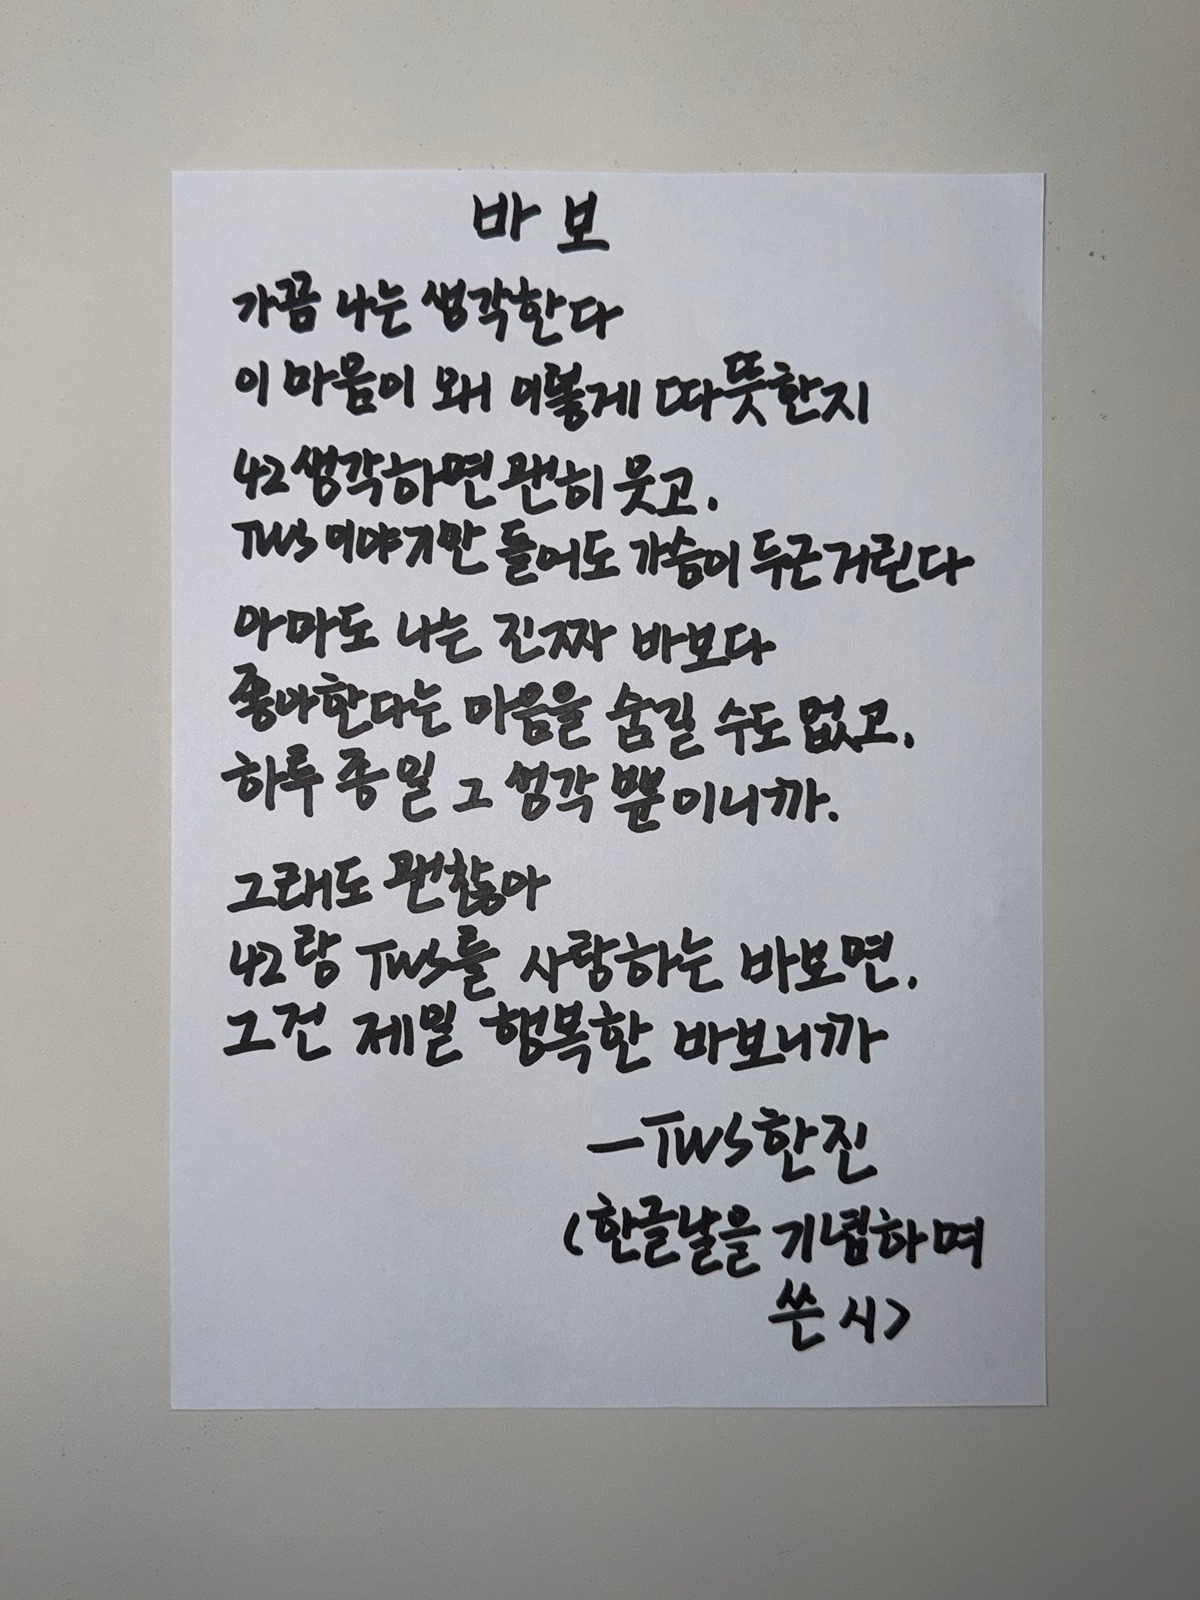 바보
가끔 나는 생각한다
이 마음이 왜 이렇게 따뜻한지
42생각하면 괜히 웃고,
TWS이야기만 들어도 가슴이 두근거린다
아마도 나는 진짜 바보다
좋아한다는 마음을 숨길 수도 없고,
하루 종일 그 생각 뿐이니까.
그래도 괜찮아
42랑 TWS를 사랑하는 바보면,
그건 제일 행복한 바보니까
-TWS한진
(한글날을 기념하며
쓴 시>